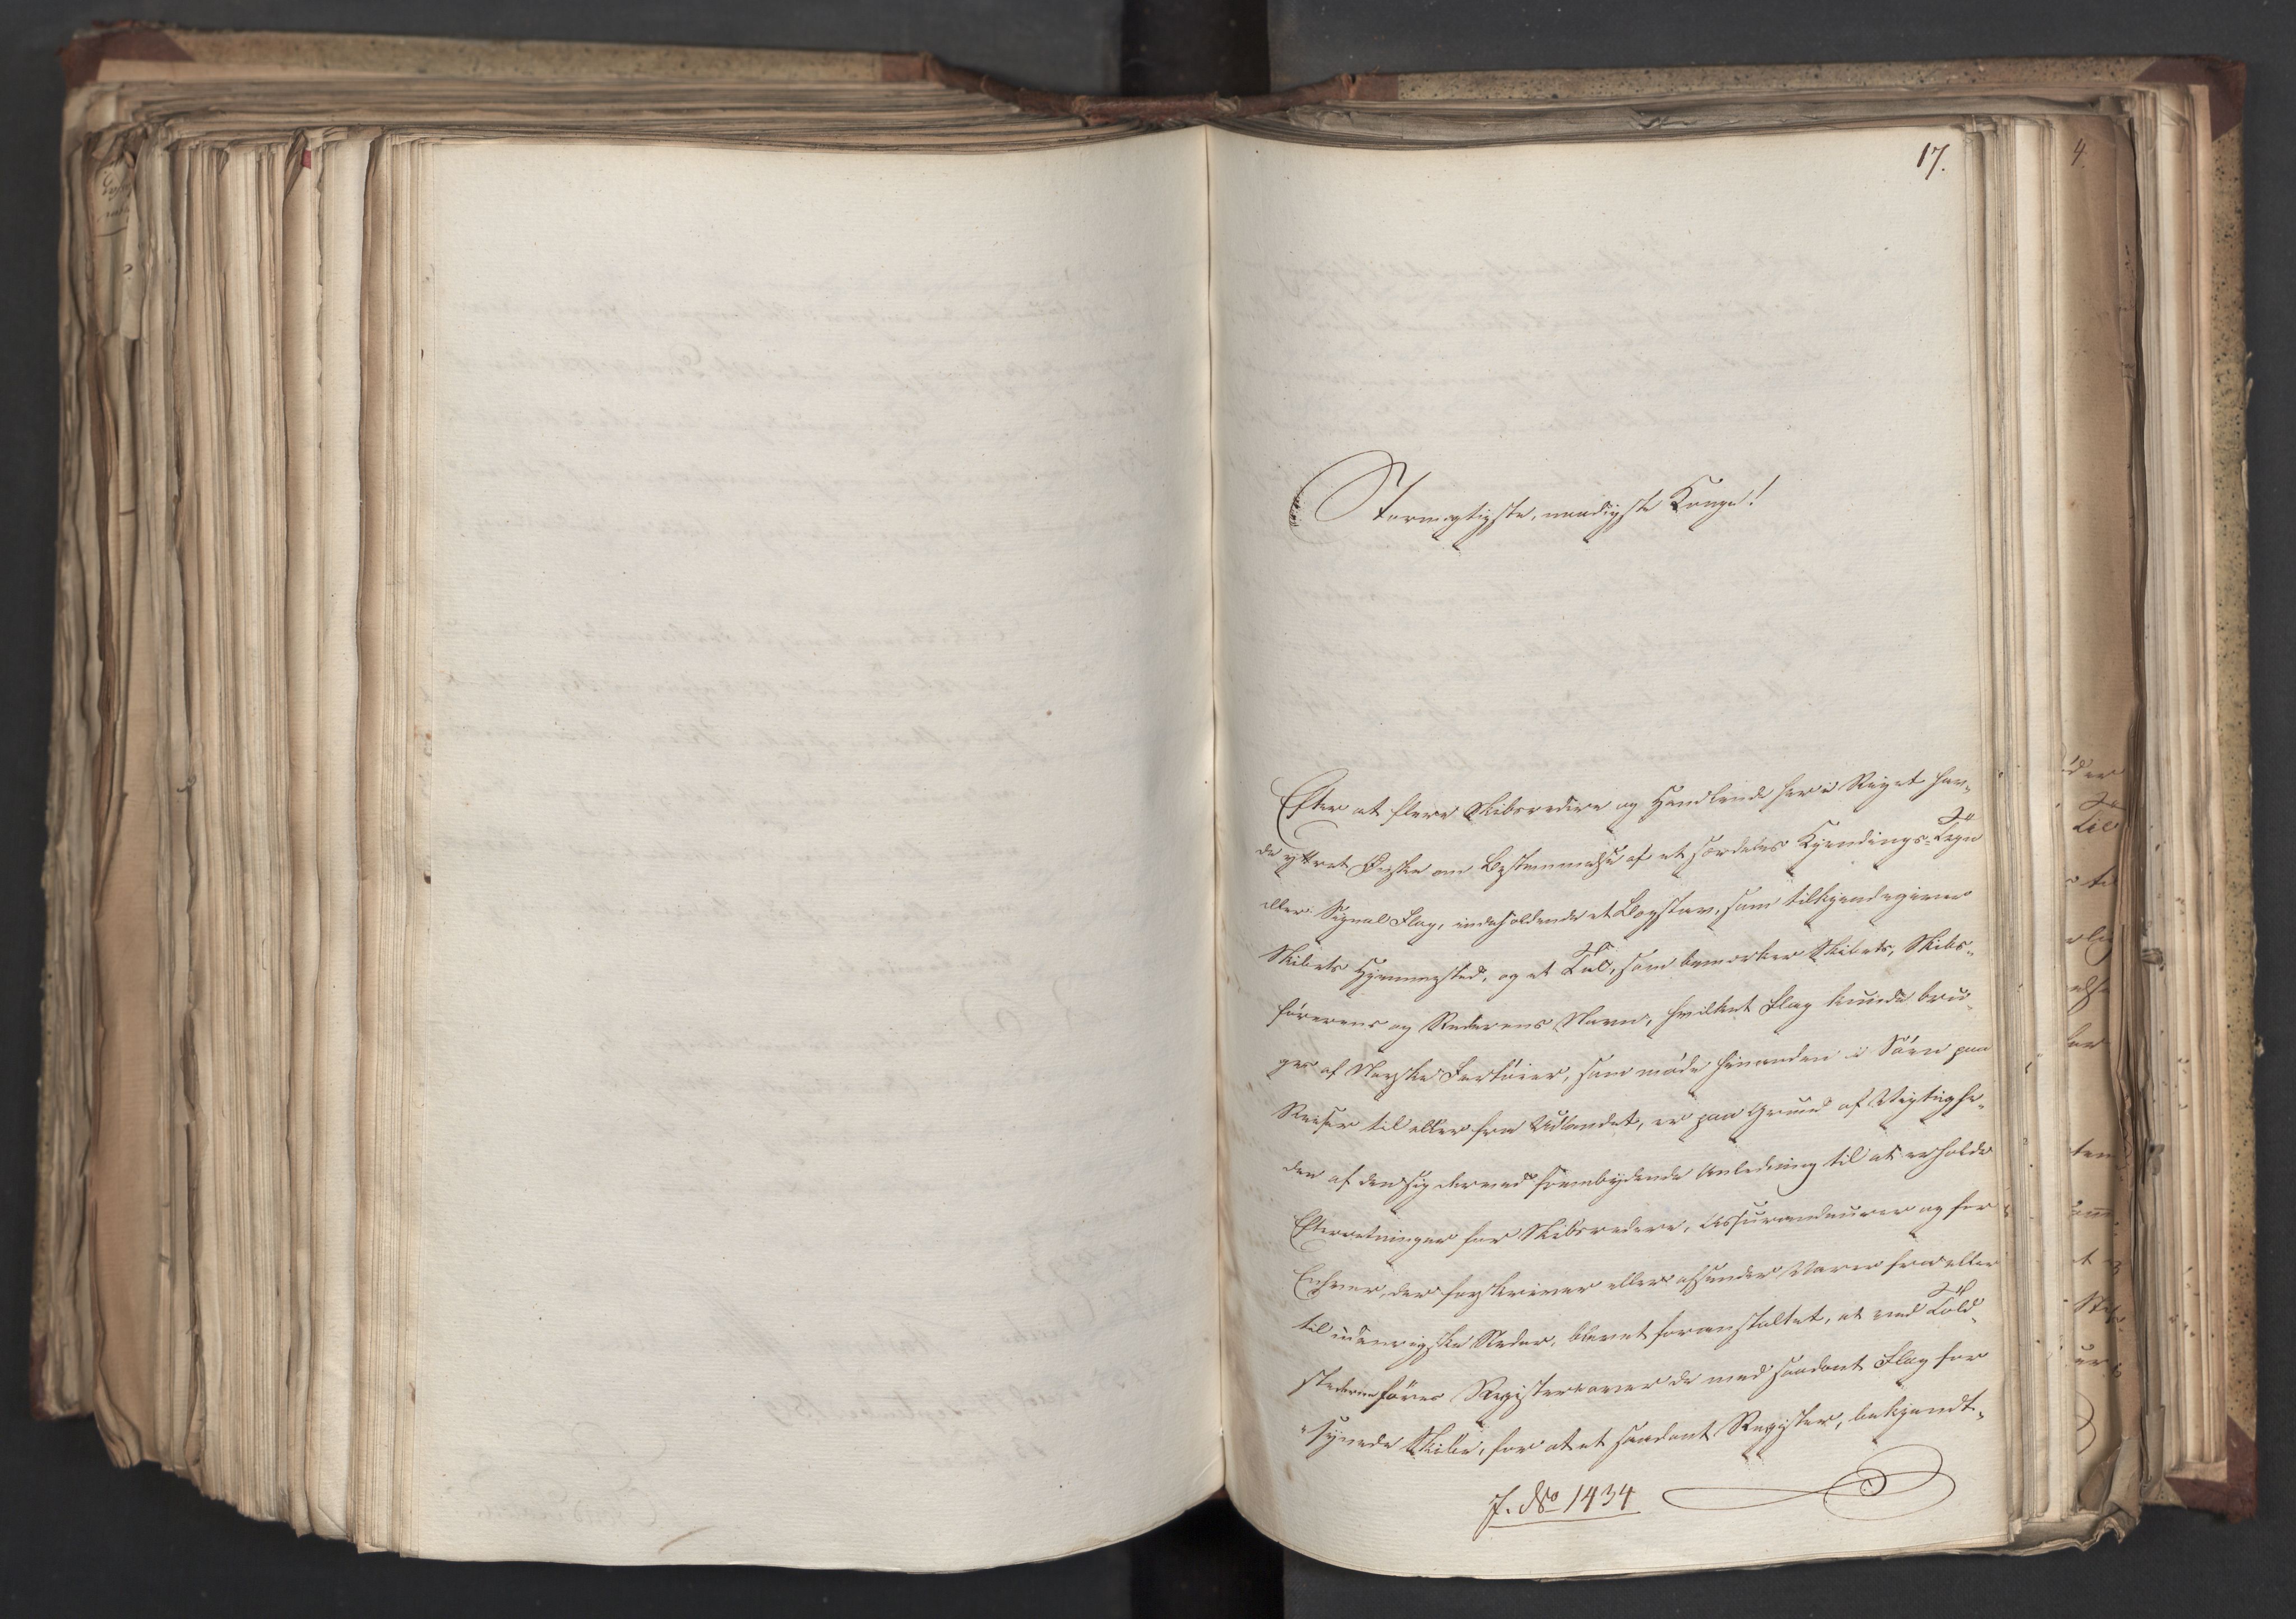 17.
Stormægtigste, naadigste Konge!
Efter at flere Skibsredere og Handlende her i Riget hav-
de yttret Ønske om Bestemmelse af et særdeles Kjendings-Tegn
eller Signal Flag, indeholdende et Bogstav, som tilkjendegiver
Skibets Hjemmested, og et Tal, som bemærker Skibets, Skibs-
førerens og Rederens Navn, hvilket Flag kunde bru-
ges af Norske Fartøier, som møde hinanden i Søen paa
Reiser til eller fra Udlandet, er paa Grund af Vigtighe-
den af den sig derved frembydende Anledning til at erholde
Efterretninger for Skibsredere, Assurandeurer og for
Enhver, der forskriver eller afsender Varer fra eller
til udenrigske Steder, blevet foranstaltet, at ved Told-
stederne føres Register over de med saadant Flag for-
synede Skibe, for at et saadant Register, bekjendt-
J. No 1434
4.